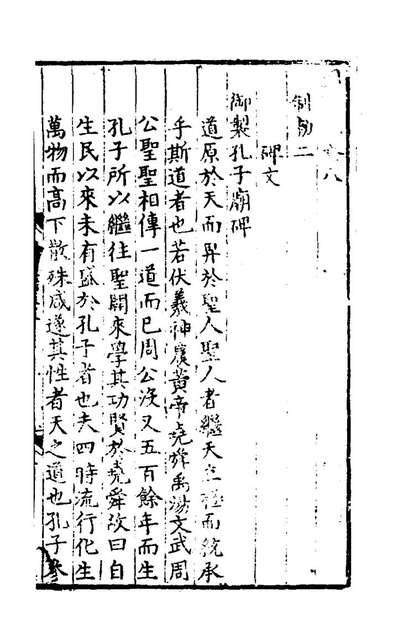 八
制勅二
碑文
御製孔子廟碑
道原於天而畀於聖人聖人者繼天立極而統承
乎斯道者也若伏羲神農黃帝堯舜禹湯文武周
公聖聖相傳一道而已周公沒又五百餘年而生
孔子所以繼往聖開來學其功賢於堯舜故曰自
生民以來未有盛於孔子者也夫四時流行化生
萬物而高下散殊咸遂其性者天之道也孔子參